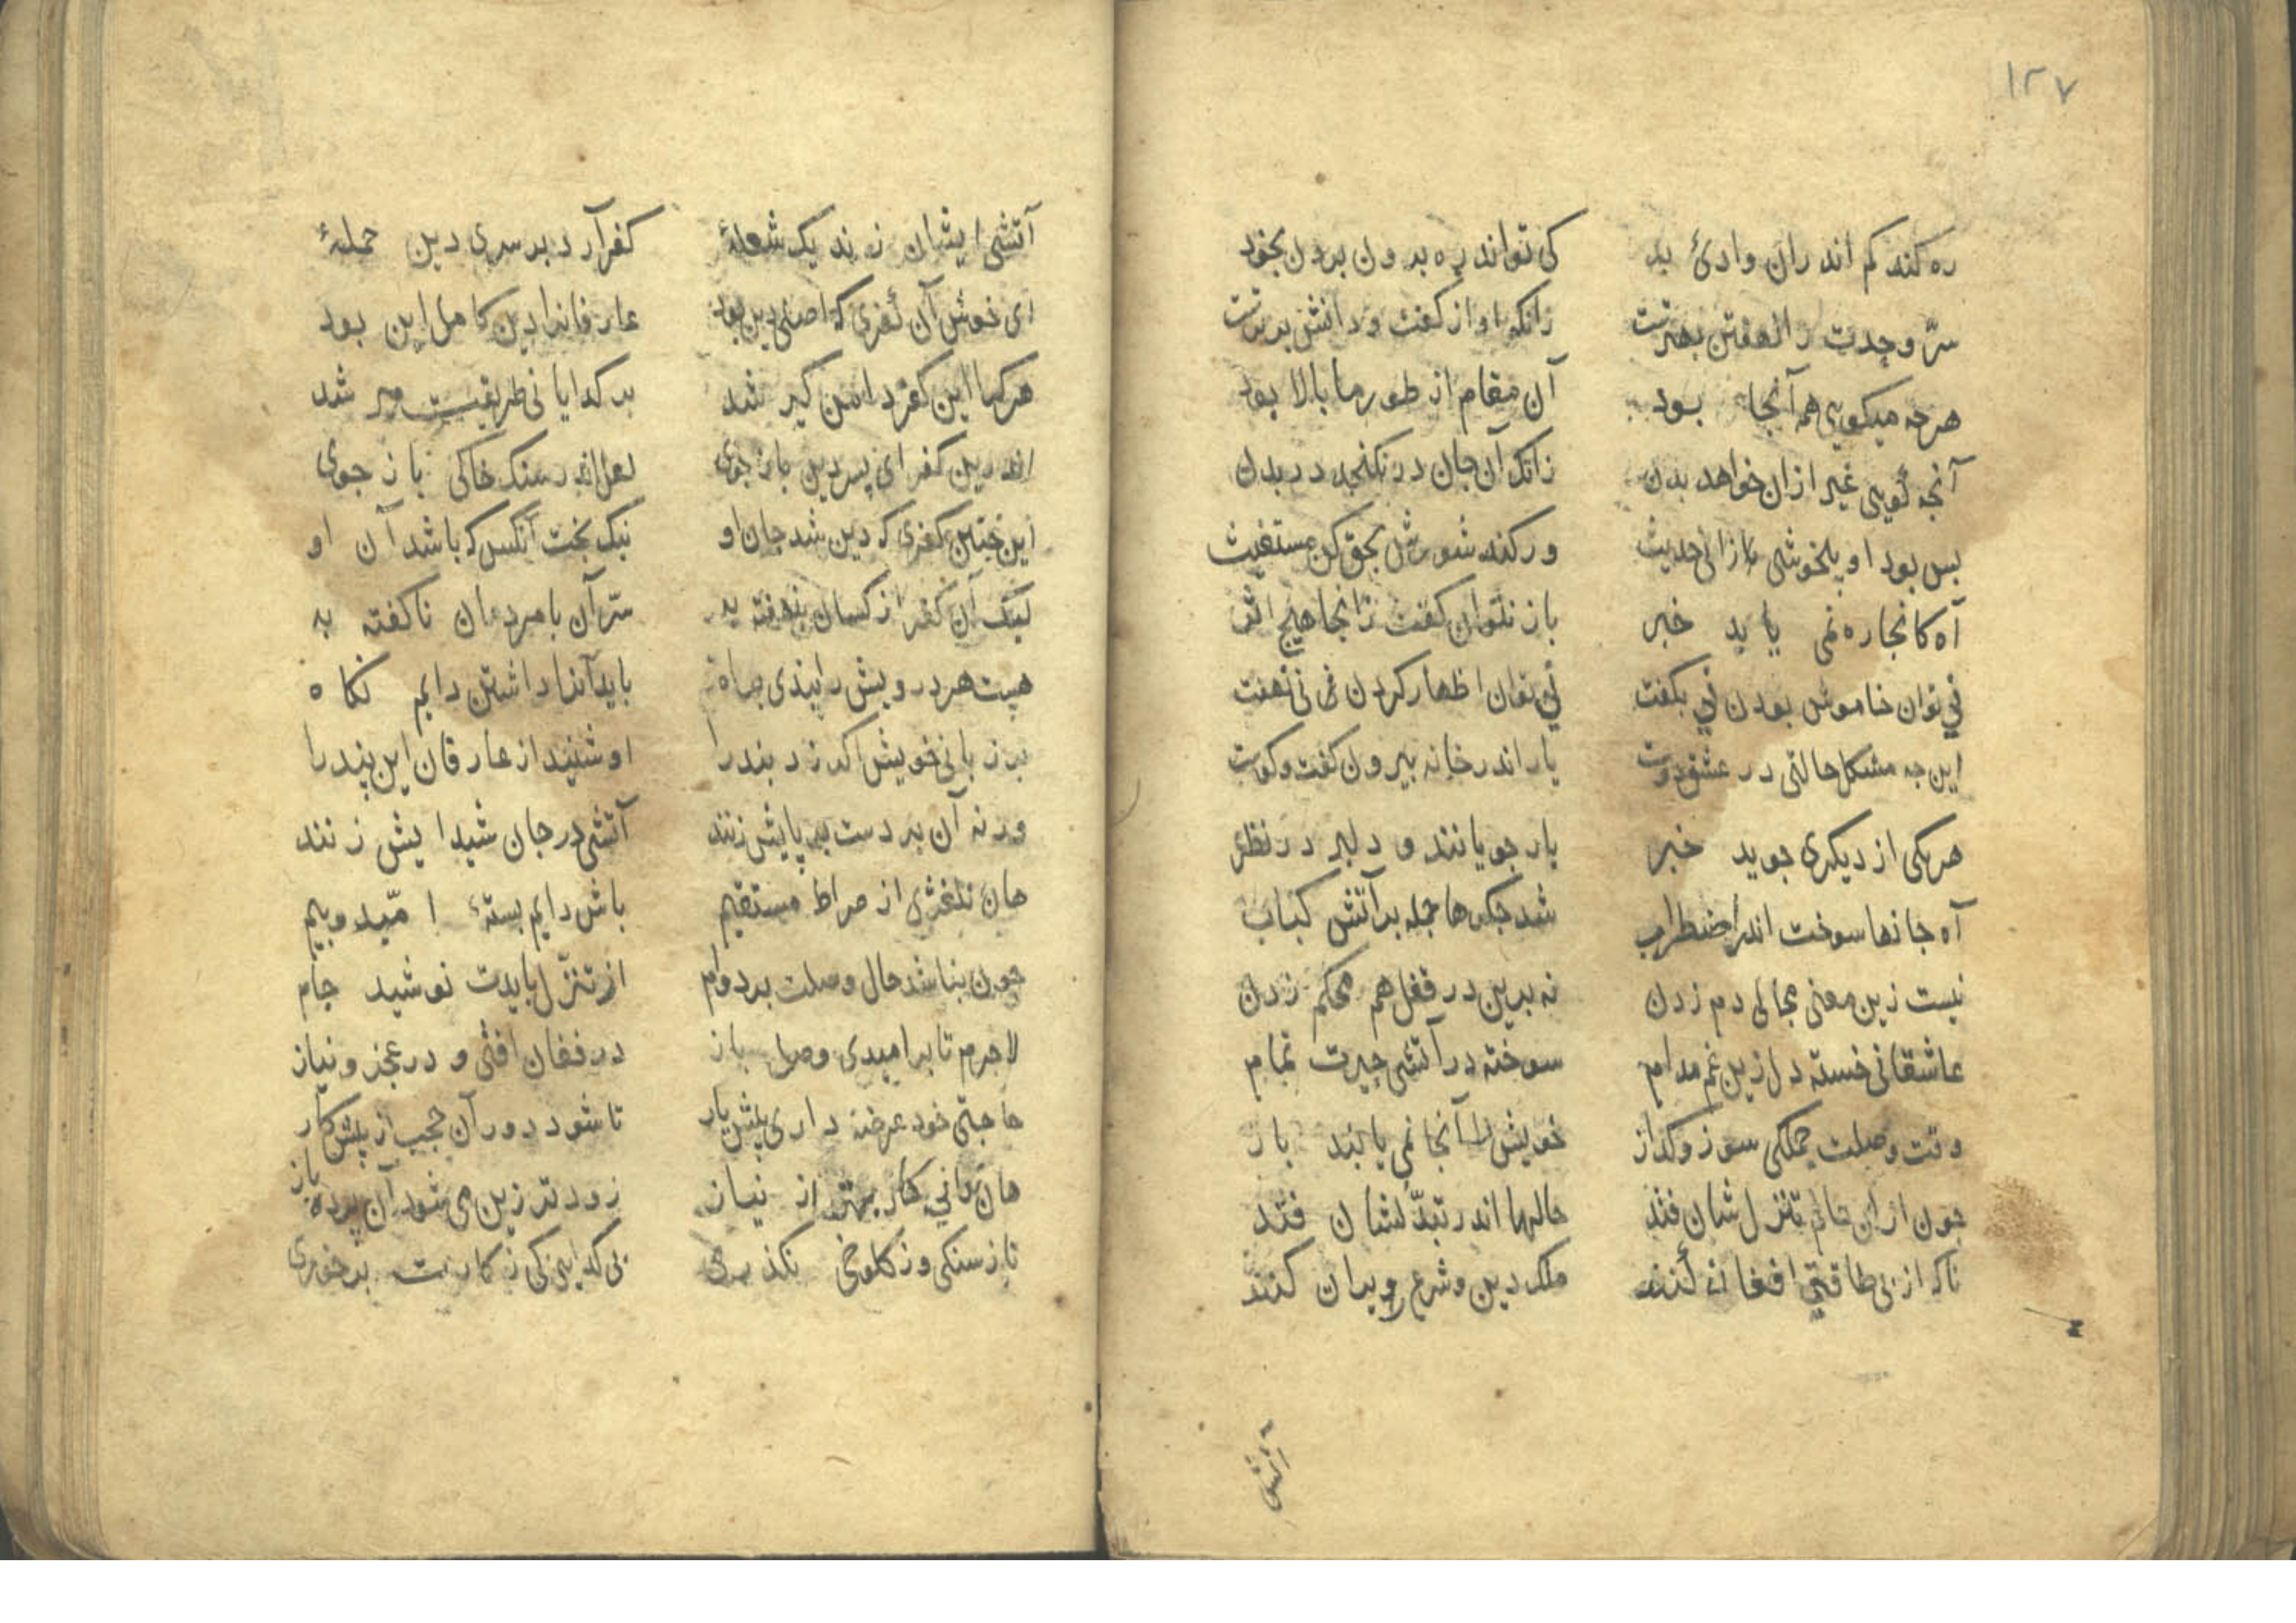 ١٢٧
ره کند کم اندران وادئ بد کی تواند ره برون بردن بخود
سرّ وحدت را نهفتن بهترست زانکه او از کفت و دانش برترست
هرچه میکویی همه آنجا بود آن مقام از طور ما بالا بود
آنچه کویی غیر ازان خواهد بدن زانک آن جان در نکنجد در بدن
بس بود او بلخوشی زان حدیث ور کند شورش بحق کن مستغیث
آه کانجا ره نمی یابد خبر باز نتوان کفت زانجا هیچ اثر
نی توان خاموش بودن نی بکفت نی توان اظهار کردن نی نهفت
این چه مشکل حالتی در عشق دوست یار اندر خانه بیرون کفت و کوست
هر یکی از دیکری جوید خبر یار جویانند و دلبر در نظر
آه جانها سوخت اندر اضطراب شد جکرها جمله بر آتش کباب
نیست زین معنی مجالی دم زدن نه برین در قفل هم محکم زدن
عاشقانی خسته دل زین غم مدام سوخته در آتشی حیرت تمام
وقت وصلت جملکی سوز و کداز خویش را آنجا نمی یابند باز
چون ازان حالم تنزل شان فتد حالها اندر تبدّلشان فتد
تاکه از بی طاقتی افغان کنند ملک دین و شرع ویران کنند
آتشی
آتشی ایشان زند یک شعلهٔ کفر آرد بر سری دین حملهٔ
ای خوش آن کفری که اصلی دین بود عارفانرا دین کامل این بود
هر کرا این کفر دامن کیر شد بر کدایانی طریقت میر شد
اندرین کفر ای پسر دین باز جوی لعل اندر سنک خاکی باز جوی
این چنین کفری که دین شد جان او نیک بخت آنکس که باشد آن او
لیک آن کفر از کسان بنهفته به سرّ آن با مردمان ناکفته به
هست هر درویش را پندی براه باید آنرا داشتن دایم نکاه
بر زبانی خویش اکر زد بند را او شنید از عارفان این پند را
ورنه آن بر دست بر پایش زنند آتشی در جان شیدایش زنند
هان نلغزی از صراط مستقیم باش دایم بستهٔ امّید و بیم
چون بناشد حال وصلت بر دوام از تنزّل بایدت نوشید جام
لاجرم تا بر امیدی وصل باز در فغان افتی و در عجز و نیاز
حاجتی خود عرضه داری پیش یار تا شود دور آن حجب از پیش کار
هان کار بهتر از نیاز زودتر زین می شود آن پرده باز
تا ز سنکی وز کلوخی نکذری بی کدایی کی ز کارت برخوری